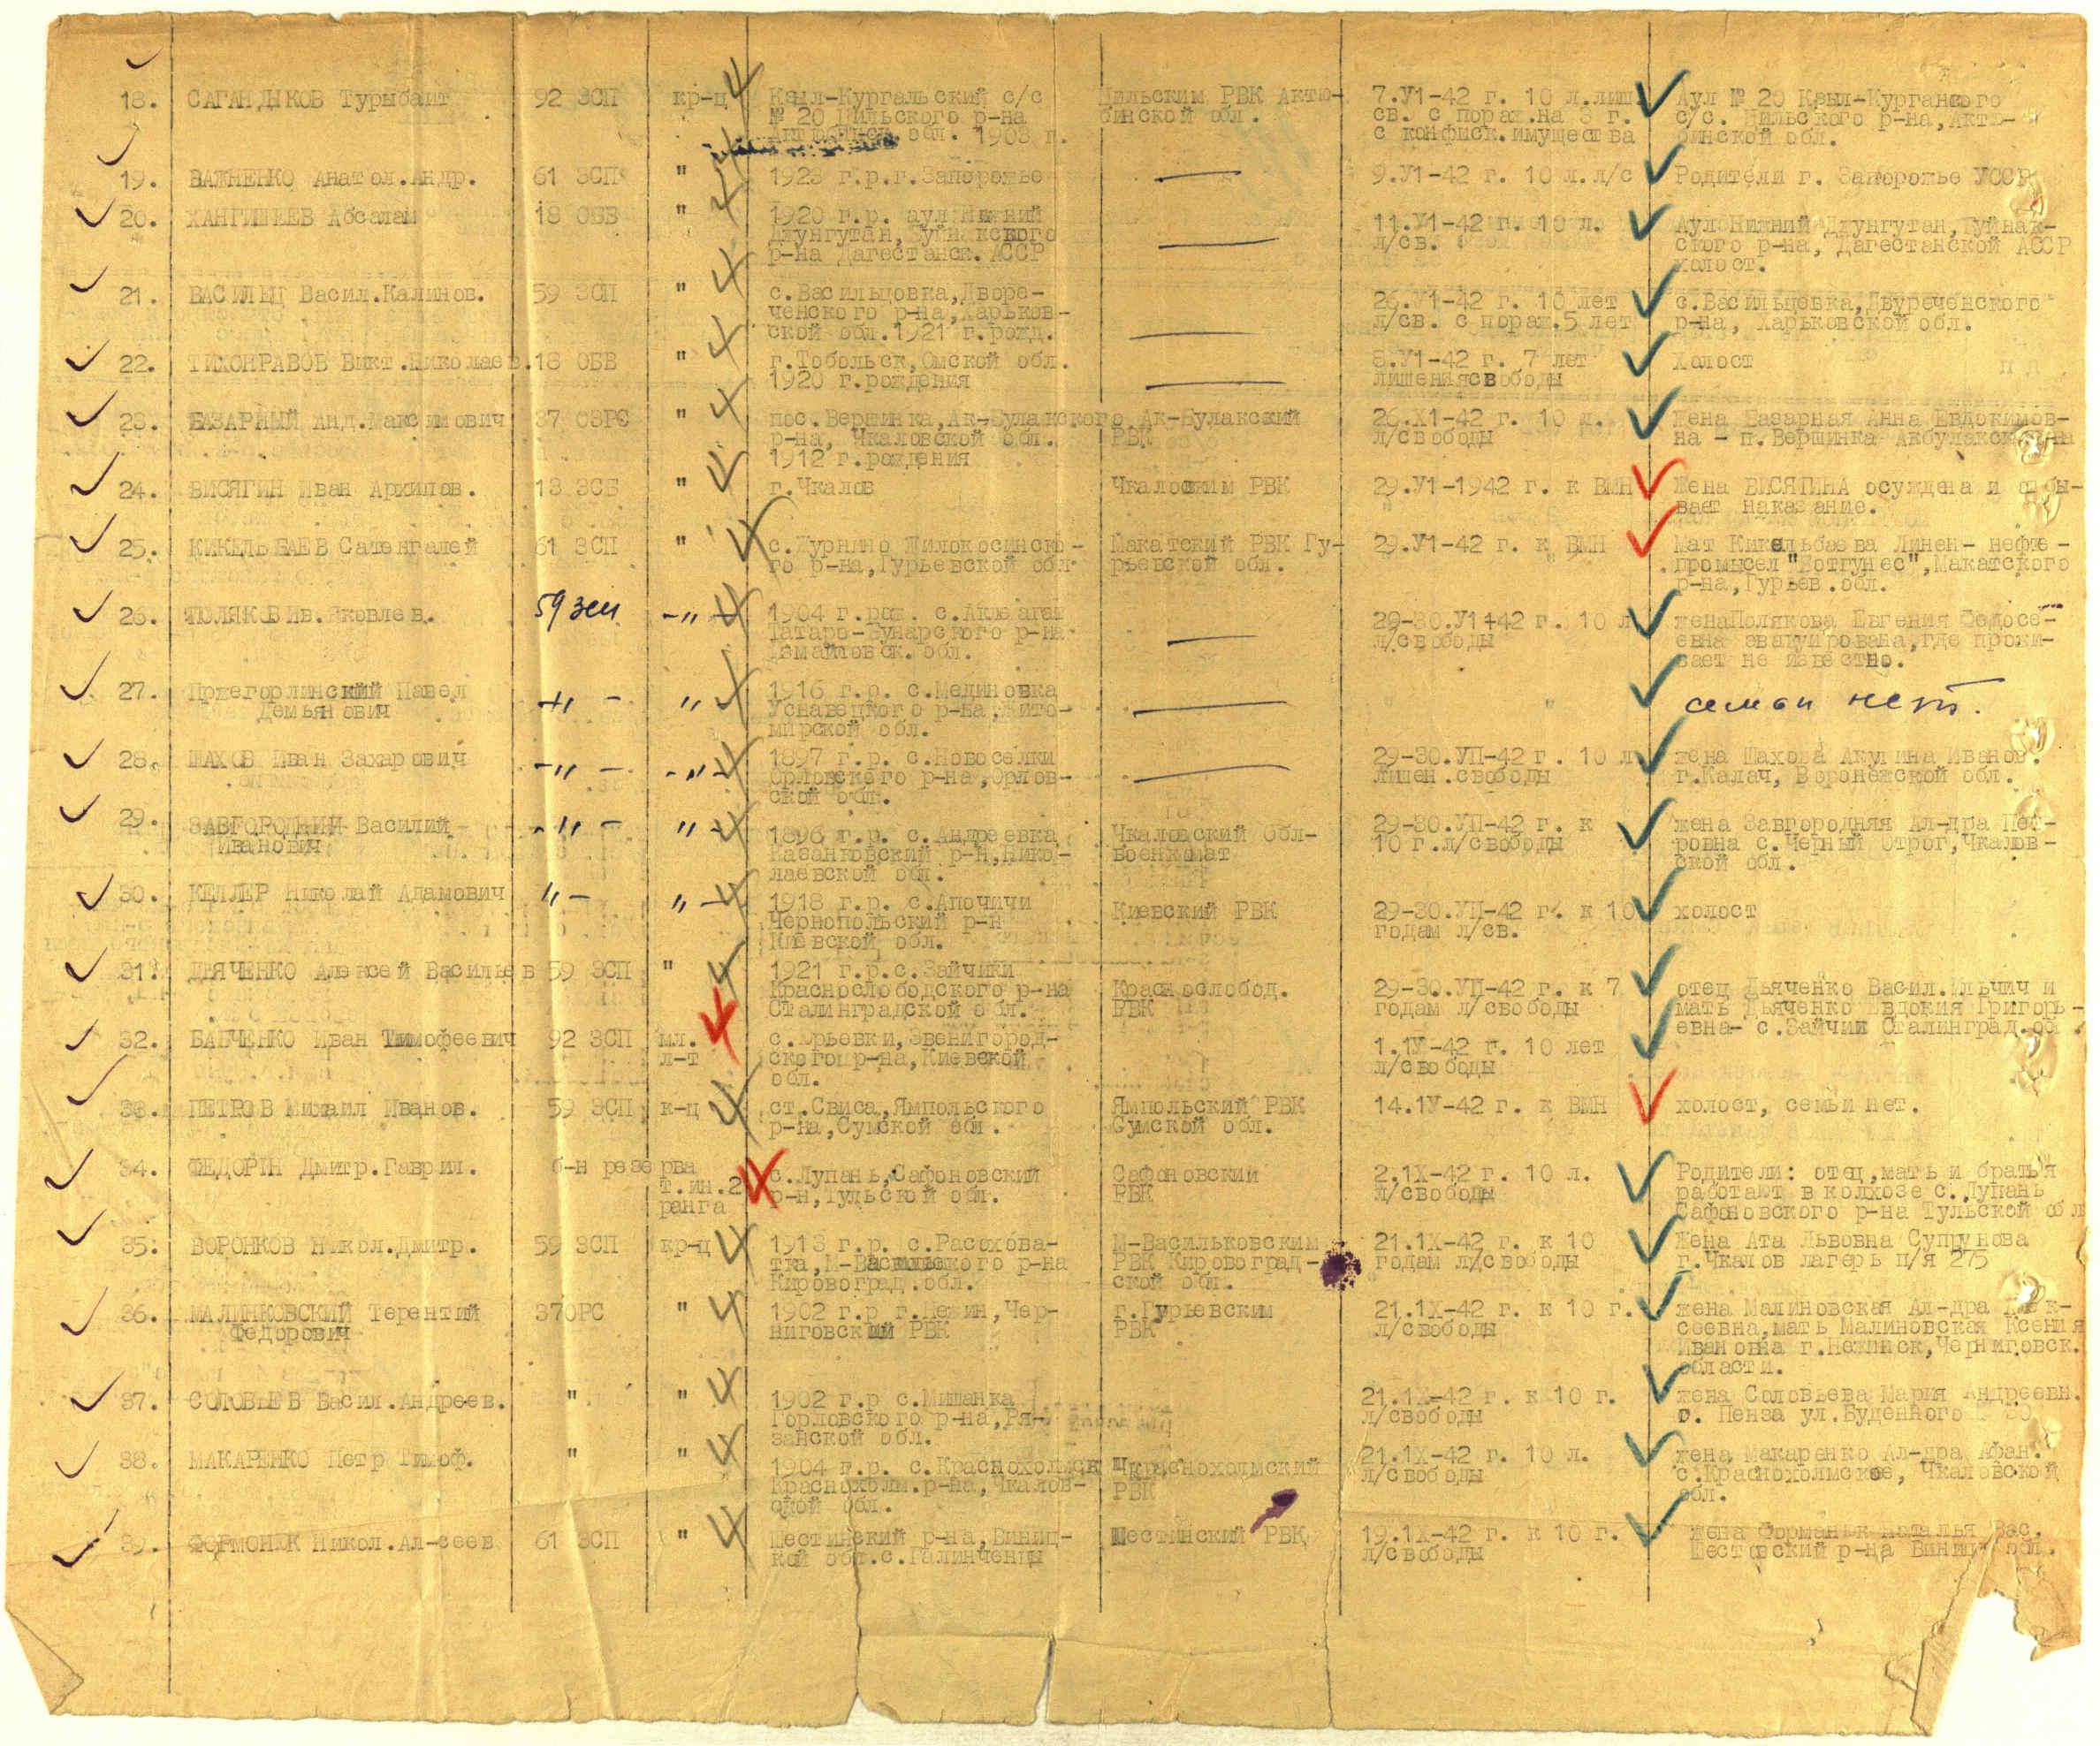 18. САГАНДЫКОВ Турыбаит 92 ЗСП кр-ц Кзыл-Кургальский с/с Уильским РВК Актю- 7.У1-42 г. 10 л.лиш. Аул № 20 Кзыл-Курганского
№ 20 Уильского р-на бинской обл. св. с пораж.на 3 г. с/с. Уильского р-на, Актю-
обл. 1903 г. с конфиск.имущества бинской обл.
19. ВАЖНЕНКО Анатол.Андр. 61 ЗСП " 1923 г.р.г.Запорожье 9.У1-42 г. 10 л.л/с Родители г. Запорожье УССР
20. ХАНГИШИЕВ Абсалам 18 ОБВ " 1920 г.р. аул Нижний 11.У1-42 г. 10 л. Аул Нижний Джунгутан, Буйнак-
Джунгутан, Буйнакского л/св. ского р-на, Дагестанской АССР
р-на Дагестанск. АССР холост.
21. ВАСИЛЕЦ Васил.Калинов. 59 ЗСП " с.Васильцовка,Дворе- 26.У1-42 г. 10 лет с.Васильцовка,Двуреченского
ченского р-на,Харьков- л/св. с пораж.5 лет р-на, Харьковской обл.
ской обл.1921 г.рожд.
22. ТИХОНРАВОВ Викт.Николаев. 18 ОБВ " г.Тобольск,Омской обл. 8.У1-42 г. 7 лет Халост
1920 г.рождения лишениясвободы
23. БАЗАРНЫЙ Анд.Максимович 37 ОЗРС " пос.Вершинка,Ак-Булакского Ак-Булакский 26.Х1-42 г. 10 л. жена Базарная Анна Евдокимов-
р-на, Чкаловской обл. РВК л/свободы на - п.Вершинка Акбулакск
1912 г.рождения
24. ВИСЯГИН Иван Архипов. 13 ЗСБ " г.Чкалов Чкаловским РВК 29.У1-1942 г. к ВМН Жена ВИСЯГИНА осуждена и отбы-
вает наказание.
25. КИКЕЛЬБАЕВ Сатенгалей 61 ЗСП " с.Журнино Жилокосинско- Макатский РВК Гу- 29.У1-42 г. к ВМН Мат Кикельбаева Линен- нефте-
го р-на,Гурьевской обл рьевской обл. промысел "Вотгунес",Макатского
р-на,Гурьев.обл.
26. ПОЛЯКОВ Ив.Яковлев. 59 зсп -"- 1904 г.рож. с.Акмаген 29-30.У1+42 г. 10 л женаПолякова Евгения Федосе-
Татаро-Бунарского р-на л/свободы евна эвакуирована,где прожи-
Измайловск.обл. вает не известно.
27. Пржегорлинский Павел -"- " 1916 г.р. с.Мединовка " " семьи нет.
Демьянович р-на,Жито-
мирской обл.
28. ШАХОВ Иван Захарович -"- -"- 1897 г.р. с.Новоселки 29-30.УП-42 г. 10 л жена Шахова Акулина Иванов.
Орловского р-на,Орлов- лишен.свободы г.Калач, Воронежской обл.
ской обл.
29. ЗАВГОРОДНИЙ Василий -"- "- 1896 г.р. с.Андреевка Чкаловский Обл- 29-30.УП-42 г. к жена Завгородняя Ал-дра Пет-
Иванович Казанковский р-н,Нико- военкомат 10 г.л/свободы ровна с.Черный Отрог,Чкалов-
лаевской обл. ской обл.
30. КЕЛЛЕР Николай Адамович "- "- 1918 г.р. с.Апочичи Киевский РВК 29-30.УП-42 г. к 10 холост
Чернопольский р-н годам л/св.
Киевской обл.
31. ДЬЯЧЕНКО Алексей Васильев 59 ЗСП " 1921 г.р.с.Зайчики Краснослобод. 29-30.УП-42 г. к 7 отец Дьяченко Васил.Ильчич и
Краснослободского р-на РВК годам л/свободы мать Дьяченко Евдокия Григорь-
Сталинградской обл. евна- с.Зайчик Сталинград.об
32. БАБЧЕНКО Иван Тимофеевич 92 ЗСП мл. с.Юрьевки,Звенигород- 1.1У-42 г. 10 лет
л-т ского р-на,Киевской л/свободы
обл.
33. ПЕТРОВ Михаил Иванов. 59 ЗСП к-ц ст.Свиса,Ямпольского Ямпольский РВК 14.1У-42 г. к ВМН холост, семьи нет.
р-на,Сумской обл. Сумской обл.
34. ФЕДОРИН Дмитр.Гаврил. б-н резерва с.Лупань,Сафоновский Сафоновским 2.1Х-42 г. 10 л. Родители: отец,мать и братья
т.ин.2 р-н,Тульской обл. РВК л/свободы работают в колхозе с.Лупань
ранга Сафоновского р-на Тульской обл
35. ВОРОНКОВ Никол.Дмитр. 59 ЗСП кр-ц 1913 г.р. с.Рассхова- М-Васильковским 21.1Х-42 г. к 10 Жена Ата Львовна Супрунова
тка,М- р-на РВК Кировоград- годам л/свободы г.Чкалов лагерь п/я 275
Кировоград.обл. ской обл.
36. МАЛИНКОВСКИЙ Терентий 37ОРС " 1902 г.р г.Нежин,Чер- г.Гурьевским 21.1Х-42 г. к 10 г. жена Малиновская Ал-дра Алек-
Федорович ниговский РВК РВК л/свободы сеевна,мать Малиновская Ксения
Ивановна г.Нежинск,Черниговск.
области.
37. СОЛОВЬЕВ Васил.Андреев. " " 1902 г.р с.Мишанка 21.1Х-42 г. к 10 г. жена Соловьева Мария Андреевн.
Горловского р-на,Ря- л/свободы г. Пенза ул.Буденного 30
занской обл.
38. МАКАРЕНКО Петр Тимоф. " " 1904 г.р. с.Краснохолмск Чкраснохолмский 21.1Х-42 г. 10 л. жена Макаренко Ал-дра Афан.
Краснохолм.р-на,Чкалов- РВК л/свободы с.Краснохолмское, Чкаловской
ской обл. обл.
39. ФОРМОНЮК Никол.Ал-сеев 61 ЗСП " Шестинский р-на,Винниц- Шестинский РВК 19.1Х-42 г. к 10 г. жена Форманюк Наталья Вас.
кой обл.с.Галинченцы л/свободы Шестовский р-на Винниц обл.